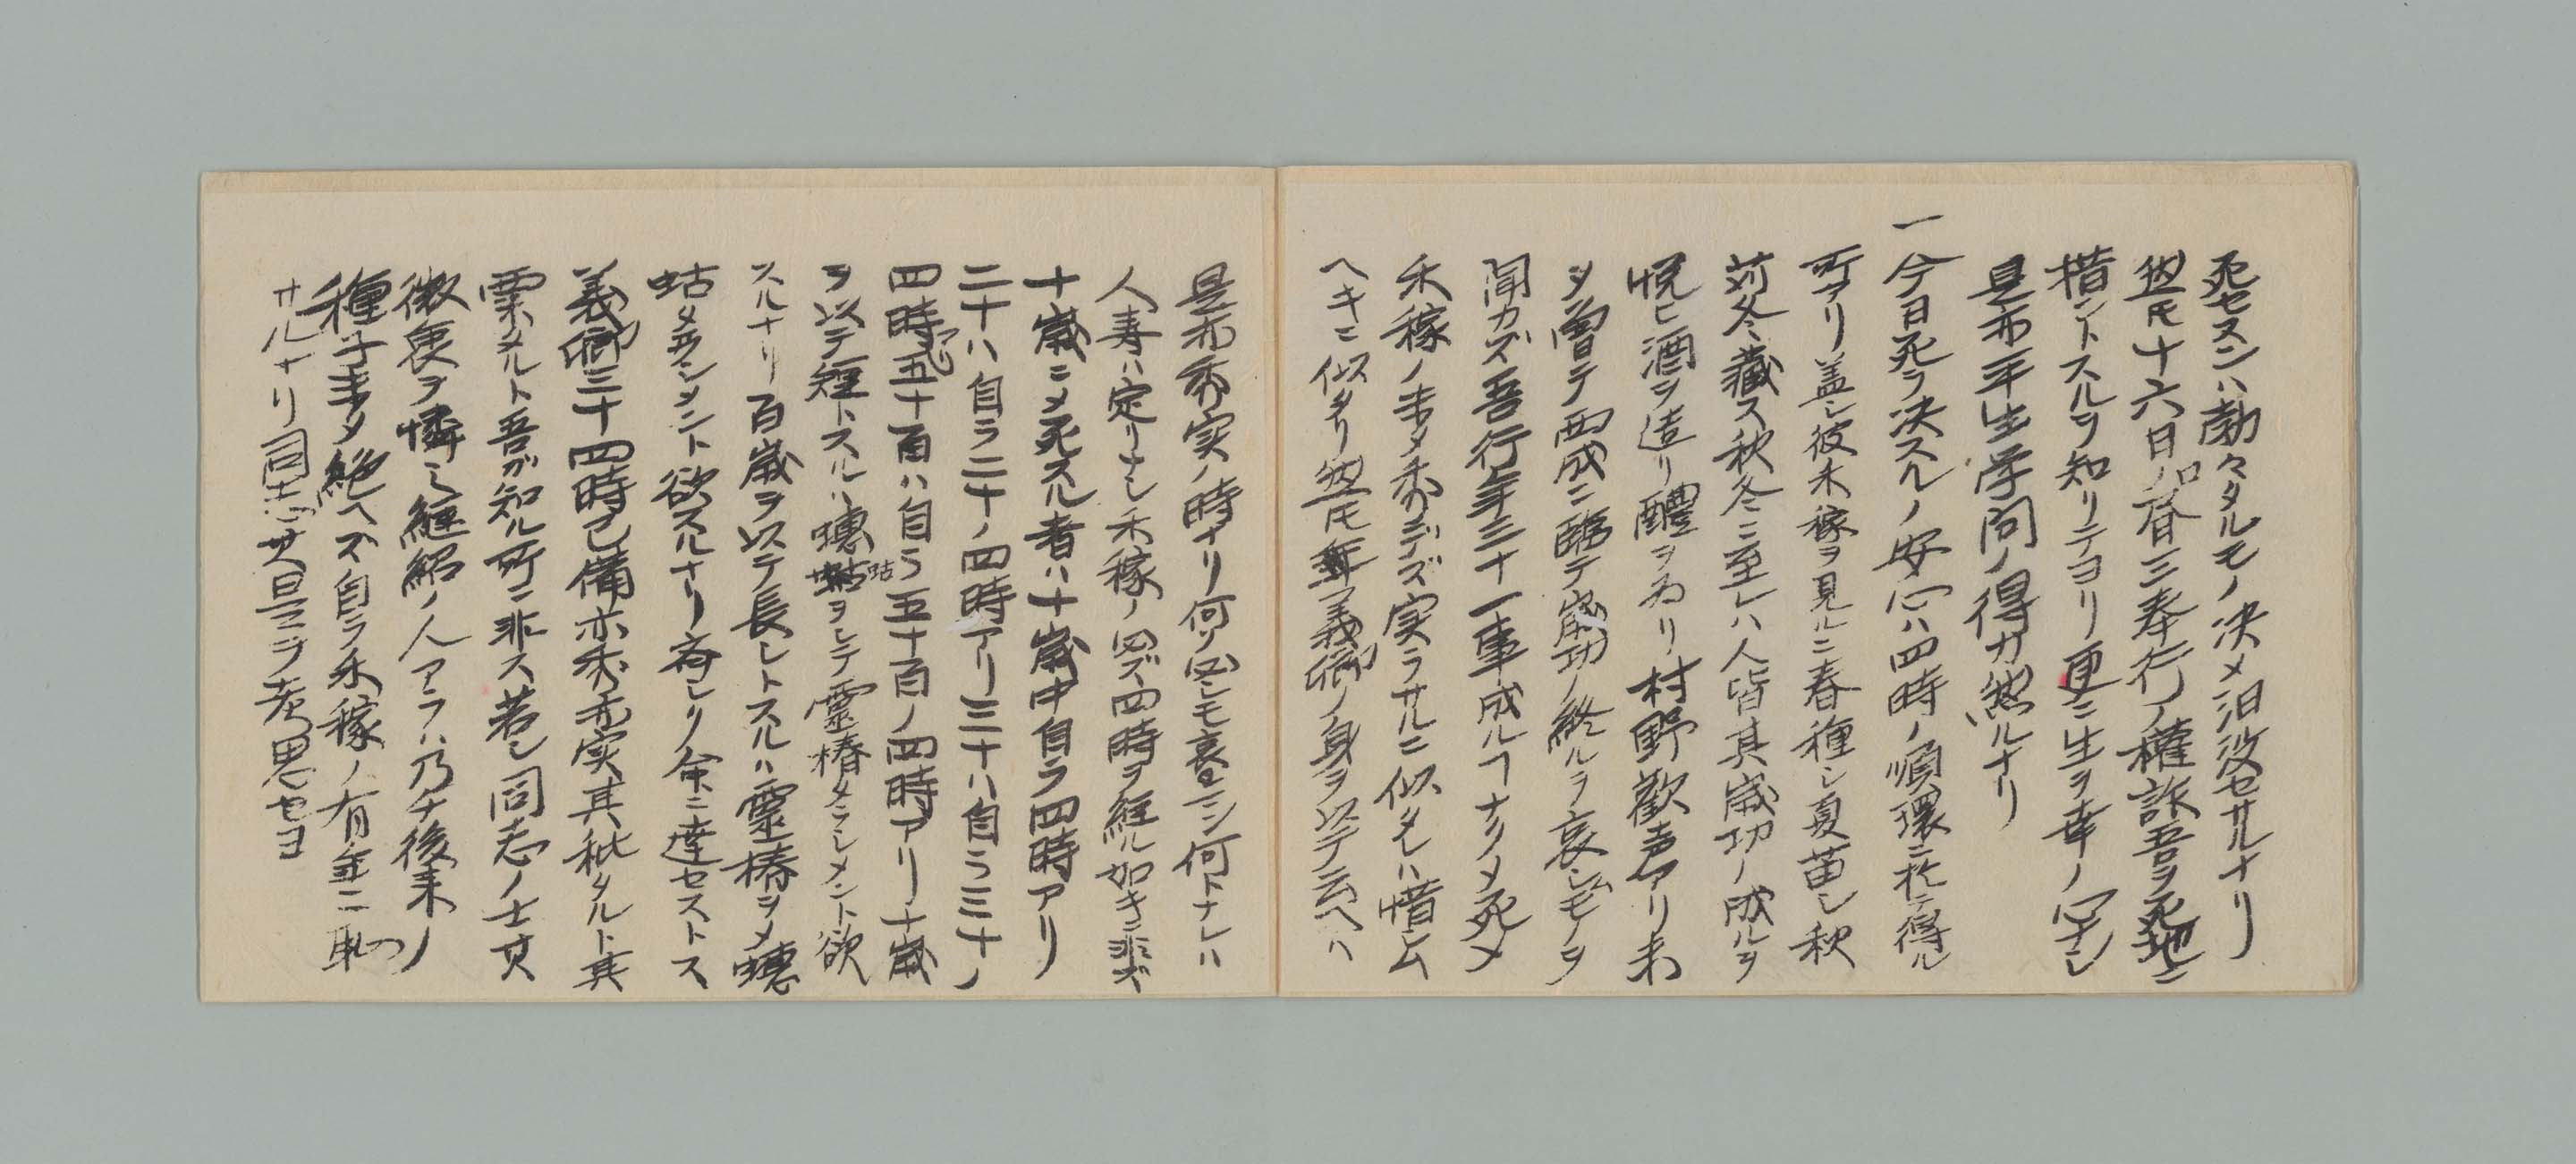 死セスンハ勃々タルモノ決メ汨没セサルナリ
然𪜈十六日ノ口書三奉行ノ權詐吾ヲ死地ニ
措ントスルヲ知リテヨリ更ニ生ヲ幸ノ心ナシ
是亦平生学問ノ得力然ルナリ
一今日死ヲ决スルノ安心ハ四時ノ順環ニ於テ得ル
所アリ蓋シ彼禾稼ヲ見ルニ春種シ夏苗シ秋
苅冬藏ス秋冬ニ至レハ人皆其歳功ノ成ルヲ
悦ヒ酒ヲ造リ醴ヲ為リ村野歡声アリ未
タ曽テ西成ニ臨テ歳功ノ終ルヲ哀シムモノヲ
聞カズ吾行年三十一事成ルヿナクメ死メ
禾稼ノ未タ秀デズ実ラサルニ似タレハ惜ム
ヘキニ似タリ然𪜈義卿ノ身ヲ以テ云ヘハ
是亦秀実ノ時ナリ何ソ必シモ哀シマン何トナレハ
人寿ハ定リナシ禾稼ノ必ズ四時ヲ経ル如キニ非ズ
十歳ニメ死スル者ハ十歳中自ラ四時アリ
二十ハ自ラ二十ノ四時アリ三十ハ自ラ三十ノ
四時アリ五十百ハ自ラ五十百ノ四時アリ十歳
ヲ以テ短トスルハ蟪蛄ヲシテ靈椿タラシメント欲
スルナリ百歳ヲ以テ長シトスルハ靈椿ヲメ蟪
蛄タラシメント欲スルナリ斉シク命ニ達セストス
義卿三十四時已備亦秀亦実其秕タルト其
粟タルト吾カ知ル所ニ非ス若シ同志ノ士其
微衷ヲ憐ミ継紹ノ人アラハ乃チ後来ノ
種子未タ絶ヘズ自ラ禾稼ノ有年ニ恥
サルナリ同志其是ヲ考思セヨ